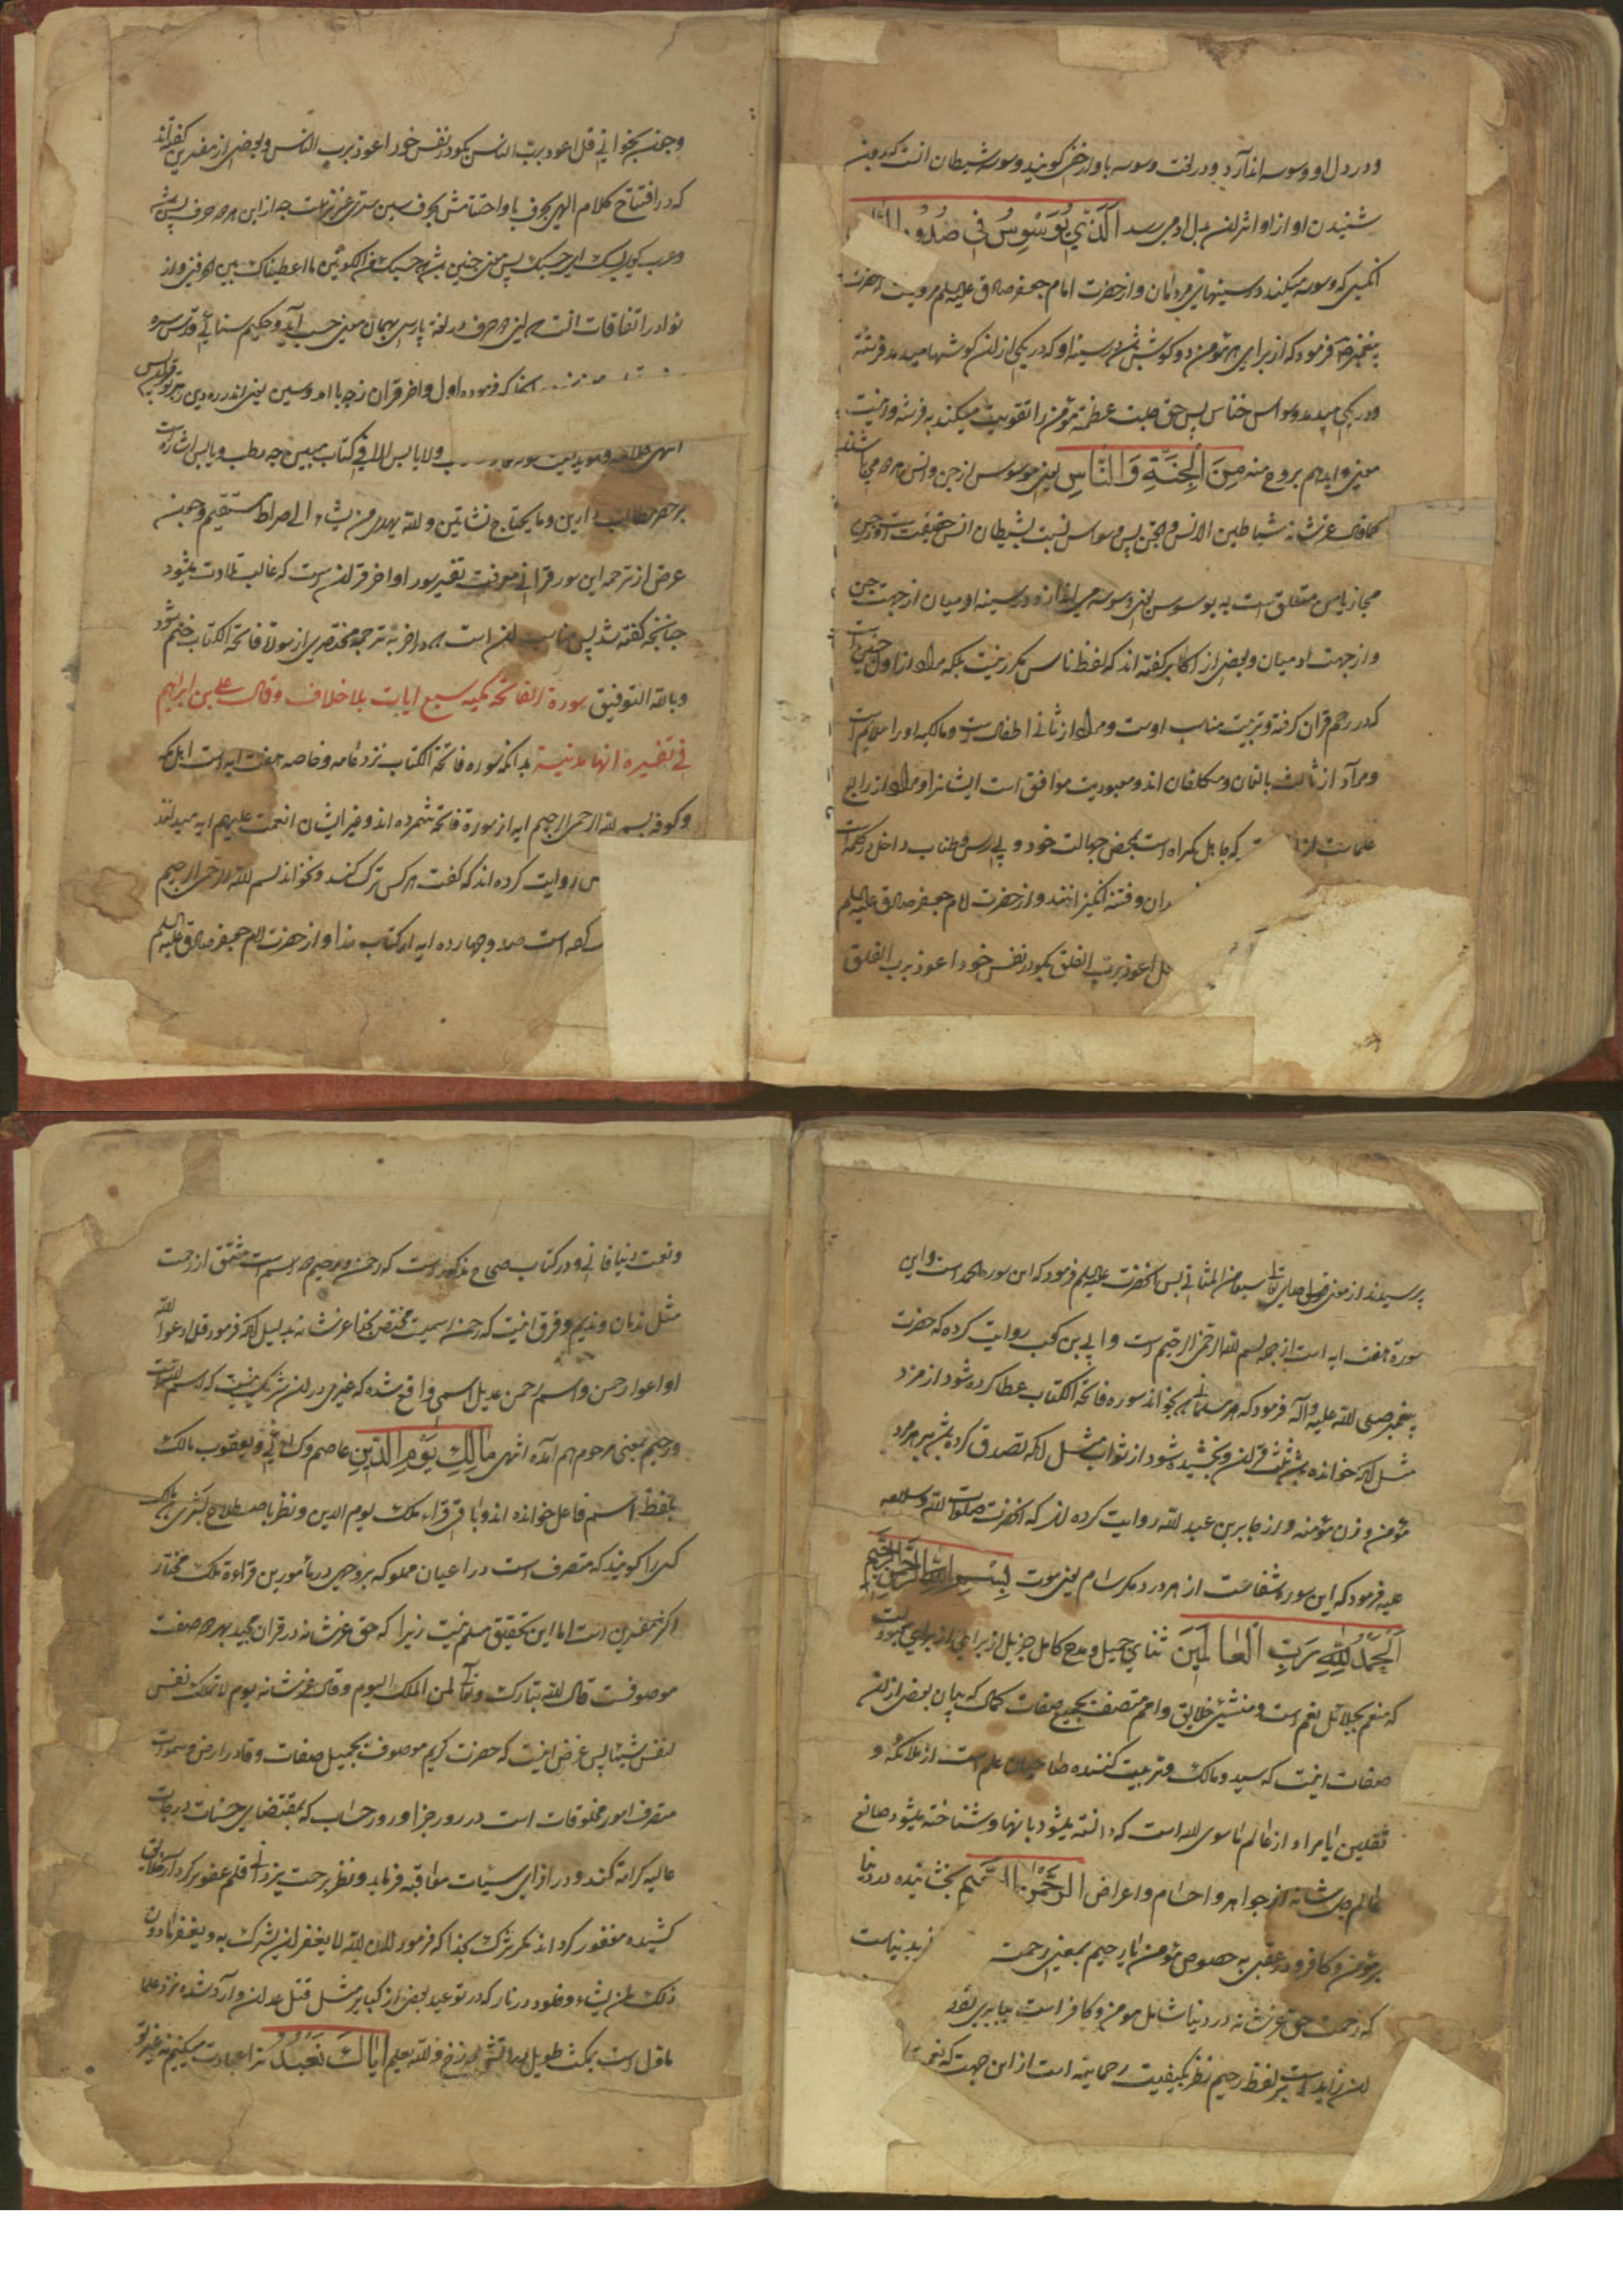 ودر دل او وسوسه اندازد ودر لغت وسوسه باواز خفی کویند وسوسه شیطان انست که بدون
شنیدن او از او اثر ان بدل ادمی رسد الَّذِي يُوَسْوِسُ فِي صُدُورِ
انکسی که وسوسه میکند در سینهای مردمان واز حضرت امام جعفر صادق علیه السلم مرویست که حضرت
پیغمبر فرمود که از برای هر مؤمن دو کوش باشد در سینه او که در یکی از ان کوشها میدمد فرشته
ودر یکی میدمد وسواس خناس پس حق جلت عظمته مؤمن را تقویت میکند به فرشته واینست
معنی وایدهم بروح منه مِنَ الْجِنَّةِ وَالنَّاسِ یعنی موسوس از جن وانس هر دو می باشند
کما قال عز شانه شیاطین الانس والجن پس وسواس نسبت بشیطان انس حقیقت است ودر جن
مجاز یا من متعلق است به یوسوس یعنی وسوسه می اندازد در سینه ادمیان از جهت جن
واز جهت ادمیان وبعضی از اکابر کفته اند که لفظ ناس مکرر نیست بلکه مراد از اول
که در رحم قران کرفته وتربیت مناسب اوست ومراد از ثانی اطفال است ومالکیه او را ملایم است
ومراد از ثالث بالغان ومکلفان اند ومعبودیت موافق است ایشانرا ومراد از رابع
علمااست که جاهل کمراه است بمحض جهالت خود
ران وفتنه انکیزانند واز حضرت امام جعفر صادق علیه السلم
قل اعوذ برب الفلق بکو در نفس خود اعوذ برب الفلق
وچون بخوانی قل اعوذ برب الناس بکو در نفس خود اعوذ برب الناس وبعضی از مفسرین کفته اند
که در افتتاح کلام الهی بحرف با واختتامش بحرف سین سری عزیز است چه از این هر دو حرف بس
وعرب کوید بسک ای حسبک پس معنی چنین باشد حسبک من الکونین ما اعطیناک بین الحرفین واز
نوادر اتفاقات انست این دو حرف در لغة پارسی بهمان معنی حسب آید وحکیم سنائی قدس سره
که فرموده اول واخر قران زچه با امد وسین یعنی اندر ره دین رهبر تو قران بس
ولا یابس الا فی کتاب مبین چه رطب ویابس اشارت است
بر جمیع مطالب دارین وما یحتاج نشاتین والله یهدی من یشاء الی صراط مستقیم وچون
غرض از ترجمه این سور قرانی معرفت تفسیر سور اواخر قران است که غالب تلاوت میشود
چنانچه کفته شد پس مناسب ان است که در اخر به ترجمه مختصری از سورة فاتحة الکتاب ختم شود
وبالله التوفیق سورة الفاتحة مکیه سبع ایات بلا خلاف وقال علی بن ابراهیم
فی تفسیره انها مدنیة بدانکه سوره فاتحة الکتاب نزد عامه وخاصه هفت ایه است اهل مکه
وکوفه بسم الله الرحمن الرحیم ایه از سورة فاتحة شمرده اند وغیر ایشان انعمت علیهم ایه میدانند
روایت کرده اند که کفت هر کس ترک کند ونخواند بسم الله الرحمن الرحیم
است صد وچهارده ایه از کتاب خدا واز حضرت امام جعفر صادق علیه السلم
پرسیدند از معنی سبعا من المثانی پس انحضرت علیه السلم فرمود که این سوره الحمد است واین
سورة هفت ایه است از جمله بسم الله الرحمن الرحیم است وابی بن کعب روایت کرده که حضرت
پیغمبر صلی الله علیه واله فرمود که هر مسلمانی که بخواند سوره فاتحة الکتاب عطا کرده شود از مزد
مثل انکه خوانده باشد ثلث قران وبخشیده شود از ثواب مثل انکه تصدق کرده باشد بر هر مرد
مؤمن وزن مؤمنه واز جابر بن عبد الله روایت کرده اند که انحضرت صلوات الله وسلامه
علیه فرمود که این سوره شفاست از هر درد مکر سام یعنی موت بِسْمِ اللهِ الرَّحْمنِ الرَّحِيمِ
اَلْحَمْدُ لِلّهِ رَبِّ الْعالَمِينَ ثنای جمیل ومدح کامل جزیل از برای
که منعم بجلائل نعم است ومنشئ خلایق وامم متصف بجمیع صفات کمال که بیان بعضی از ان
صفات اینست که سید ومالک وتربیت کننده صاحبان علم است از ملائکه و
ثقلین یا مراد از عالم ما سوی الله است که دانسته میشود بانها وشناخته میشود صانع
عالم جل شانه از جواهر واجسام واعراض الرَّحْمنِ الرَّحِيمِ بخشاینده در دنیا
بر مؤمن وکافر ودر عقبی به خصوص مؤمن یا رحیم بمعنی رحمت
که رحمت حق عز شانه در دنیا شامل مومن وکافر است
ان زاید است بر لفظ رحیم نظر بکیفیت رحمانیه است از این جهت که نعمت
ونعمت دنیا فانی ودر کتاب صحاح مذکور است که رحمن ورحیم دو اسم است مشتق از رحمت
مثل ندمان وندیم وفرق اینست که رحمن اسمیست مختص بخدا عز شانه بدلیل انکه فرمود قل ادعوا الله
او ادعوا الرحمن واسم رحمن عدیل اسمی واقع شده که غیر را در ان شرکت نیست که اسم الله است
ورحیم بمعنی مرحوم هم آمده انتهی مالِكِ يَوْمِ الدِّينِ عاصم وکسائی ویعقوب مالک
بلفظ اسم فاعل خوانده اند وباقی قراء ملک یوم الدین ونظر باصطلاح
کسی را کویند که متصرف است در اعیان مملوکه بر وجهی در مأمورین قراءة ملک مختار
اکثر مفسرین است اما این تحقیق مسلم نیست زیرا که حق عز شانه در قران مجید بهر دو صفت
موصوفست قال الله تبارک وتعالی لمن الملک الیوم وقال عز شانه یوم لا تملک نفس
لنفس شیئا پس غرض اینست که حضرت کریم موصوف بجمیل صفات وقادر ارض وسموات
متصرف امور مخلوقات است در روز جزا وروز حساب که بمقتضای حسنات درجات
عالیه کرامة کند ودر ازای سیئات معاقبه فرماید ونظر برحمت یزدانی قلم عفو بر کردار خلایق
کشیده مغفور کرداند مکر شرک بخدا که فرمود ان الله لا یغفر ان یشرک به ویغفر ما دون
ذلک لمن یشاء وخلود در نار که در توعید بعضی از کبایر مثل قتل عمد ان وارد شده نزد علما
ماول است بمکث طویل والله یعلم اِيّاكَ نَعْبُدُ ترا عبادت میکنیم نه غیر تو